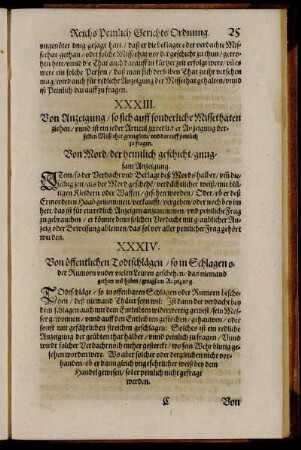 Reichs Peinlich Gerichts Ordnung. 25
ungenöter ding gesagt hett / daß er die beklagte oder verdachte Misse-
that gethan / oder solche Missethat vor der geschicht zu thun / getrew-
het hett / vnd die That auch darauff in kurtzer zeit erfolget were / vñ es
were ein solche Person / daß man sich derselben That zu jhr versehen
mag / wird auch für redliche Anzeigung der Missethat gehalten / vnnd
ist Peinlich darauff zu fragen.
XXXIII.
Von Anzeigung / so sich auff sonderliche Missethaten
ziehen / vnnd ist ein jeder Articul zu redlicher Anzeigung der-
selben Missethat gnugsam / vnd darauff peinlich
zu fragen.
Von Mord / der heimlich geschicht / gnug-
sam Anzeigung.
ITem / so der Verdacht vnd Beklagt deß Mords halber / vm̃ die
selbig zeit / als der Mord geschehẽ / verdächtlicher weiß / mit blü-
tigen Kleidern oder Waffen / gesehen worden / Oder / ob er deß
Ermordeten Haab genommen / verkaufft / vergeben / oder noch bey jm
hett / das ist für ein redlich Anzeigen anzunemmen / vnd peinliche Frag
zu gebrauchen / er könne denn solchen Verdacht mit glaublicher An-
zeig oder Beweisung ableinen / das sol vor aller peinlicher Frag gehört
werden.
XXXIV.
Von öffentlichen Todtschlägen / so in Schlagen o-
der Rumorn vnder vielen Leuten geschehen / das niemand
gethan wil haben / gnugsam Anzeigung.
TOdtschläge / so in offenbaren Schlagen oder Rumorn besche-
hen / deß niemand Thäter seyn wil: Ist dann der verdacht bey
dem Schlagen auch mit dem Entleibten widerwertig gewest / sein Mes-
ser gewonnen / vnd auff den Entleibten gestochen / gehauwen / oder
sonst mit gefährlichen streichen geschlagen: Solches ist ein redliche
Anzeigung der geübten that halber / vnd peinlich zu fragen / Vnnd
würdt solcher Verdacht noch mehr gesterckt / wo sein Wehr blutig ge-
sehen worden were. Wo aber solcher oder dergleichen nicht vor-
handen / ob er dann gleich ungefehrlicher weiß bey dem
Handel gewesen / sol er peinlich nicht gefragt
werden.
E Von